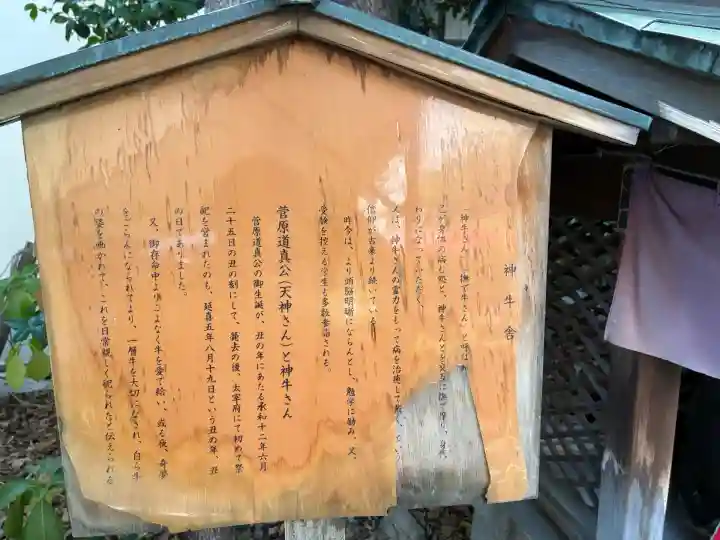 神牛舎
「神牛さん」「撫で牛さん」と呼ばれ
身体の病む処と、神牛さんとを交互に撫で摩り、身代
わりになっていただく。
人は、神牛さんの霊力をもって病を治癒して戴く、という
信仰が古来より続いている。
昨今は、より頭脳明晰にならんとし、勉学に励み、又、
受験を控える学生も多数参詣される。
菅原道真公(天神さん)と神牛さん
菅原道真公の御生誕が、丑の年にあたる承和十二年六月
二十五日の丑の刻にして、薨去の後、太宰府にて初めて祭
祀を営まれたのも、延喜五年八月十九日という丑の年、丑
の日でありました。
又、御存命中よりこよなく牛を愛で給い、或る夜、奇夢
をごらんになられてより、一層牛を大切になされ、自ら牛
の姿を画かれて、これを日常親しく祀られたと伝えられる